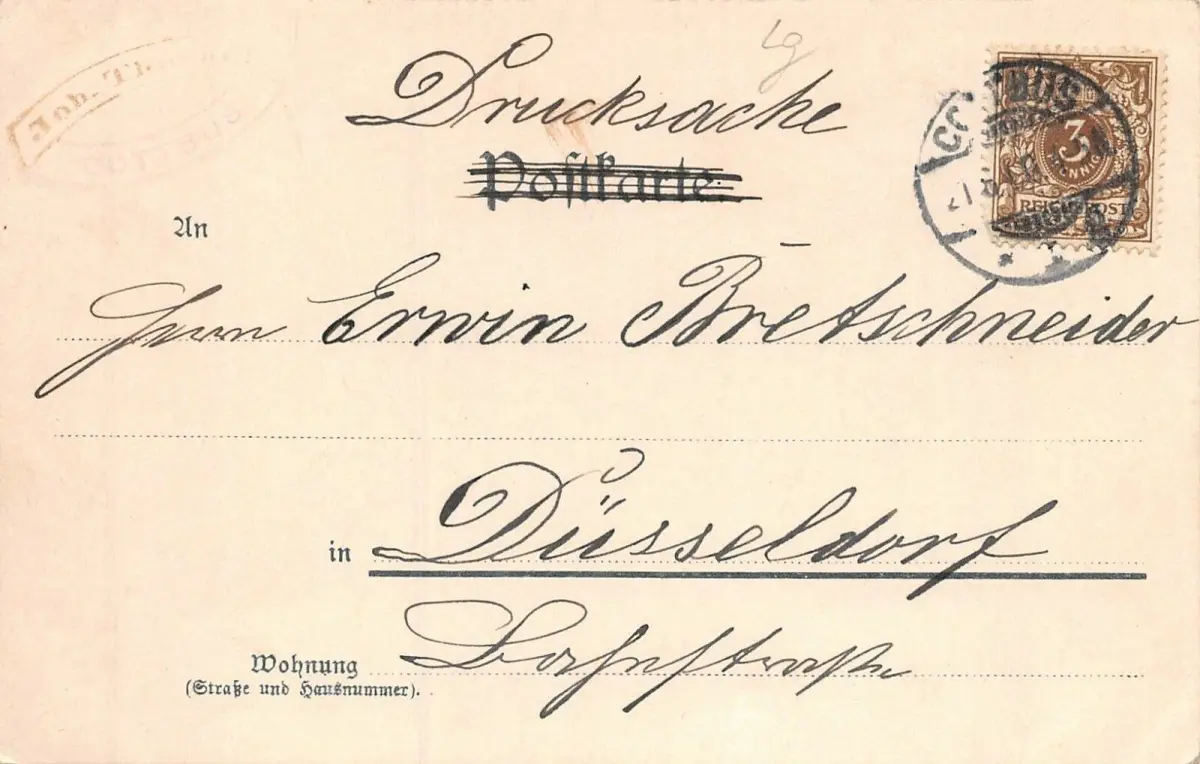 Drucksache
Postkarte.
An
Herrn Erwin Bretschneider
in Düsseldorf
Wohnung
(Straße und Hausnummer).
3
PFENNIG
REICHSPOST
Joh.